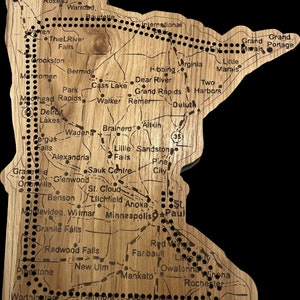 Roseau
Warroad
Baudette
International
Thief River
Falls
Grand
Marais
Grand
Portage
Crookston
Bermidji
Virginia
Little
Marais
Cass Lake
Dear River
Hibbing
Two
Harbors
Moorhead
Park
Rapids
Grand Rapids
Walker
Remer
Duluth
Detroit
Lakes
Wadena
Brainerd
Aitkin
Fergus
Falls
35
Little
Falls
Sandstone
Alexandria
Pine
City
Glenwood
Sauk Centre
Ortonville
St. Cloud
Benson
Litchfield
Anoka
Montevideo
Wilmar
Minneapolis
St.
Paul
Granite Falls
Red Wing
Redwood Falls
Faribault
New Ulm
Owatonna
Winona
Pipestone
Mankato
Rochester
Worthington